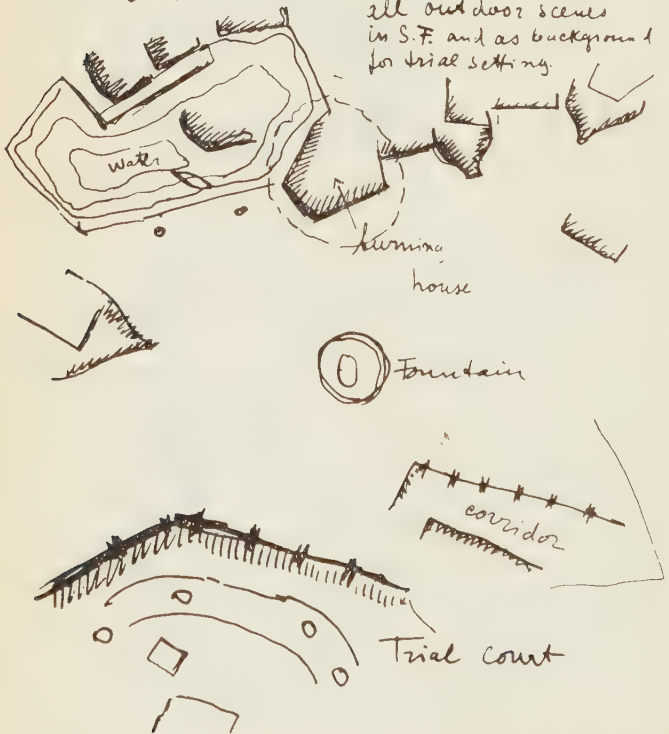 all outdoor scenes
in S.F. and as background
for trial setting.
Water
burning
house
Fountain
corridor
Trial court